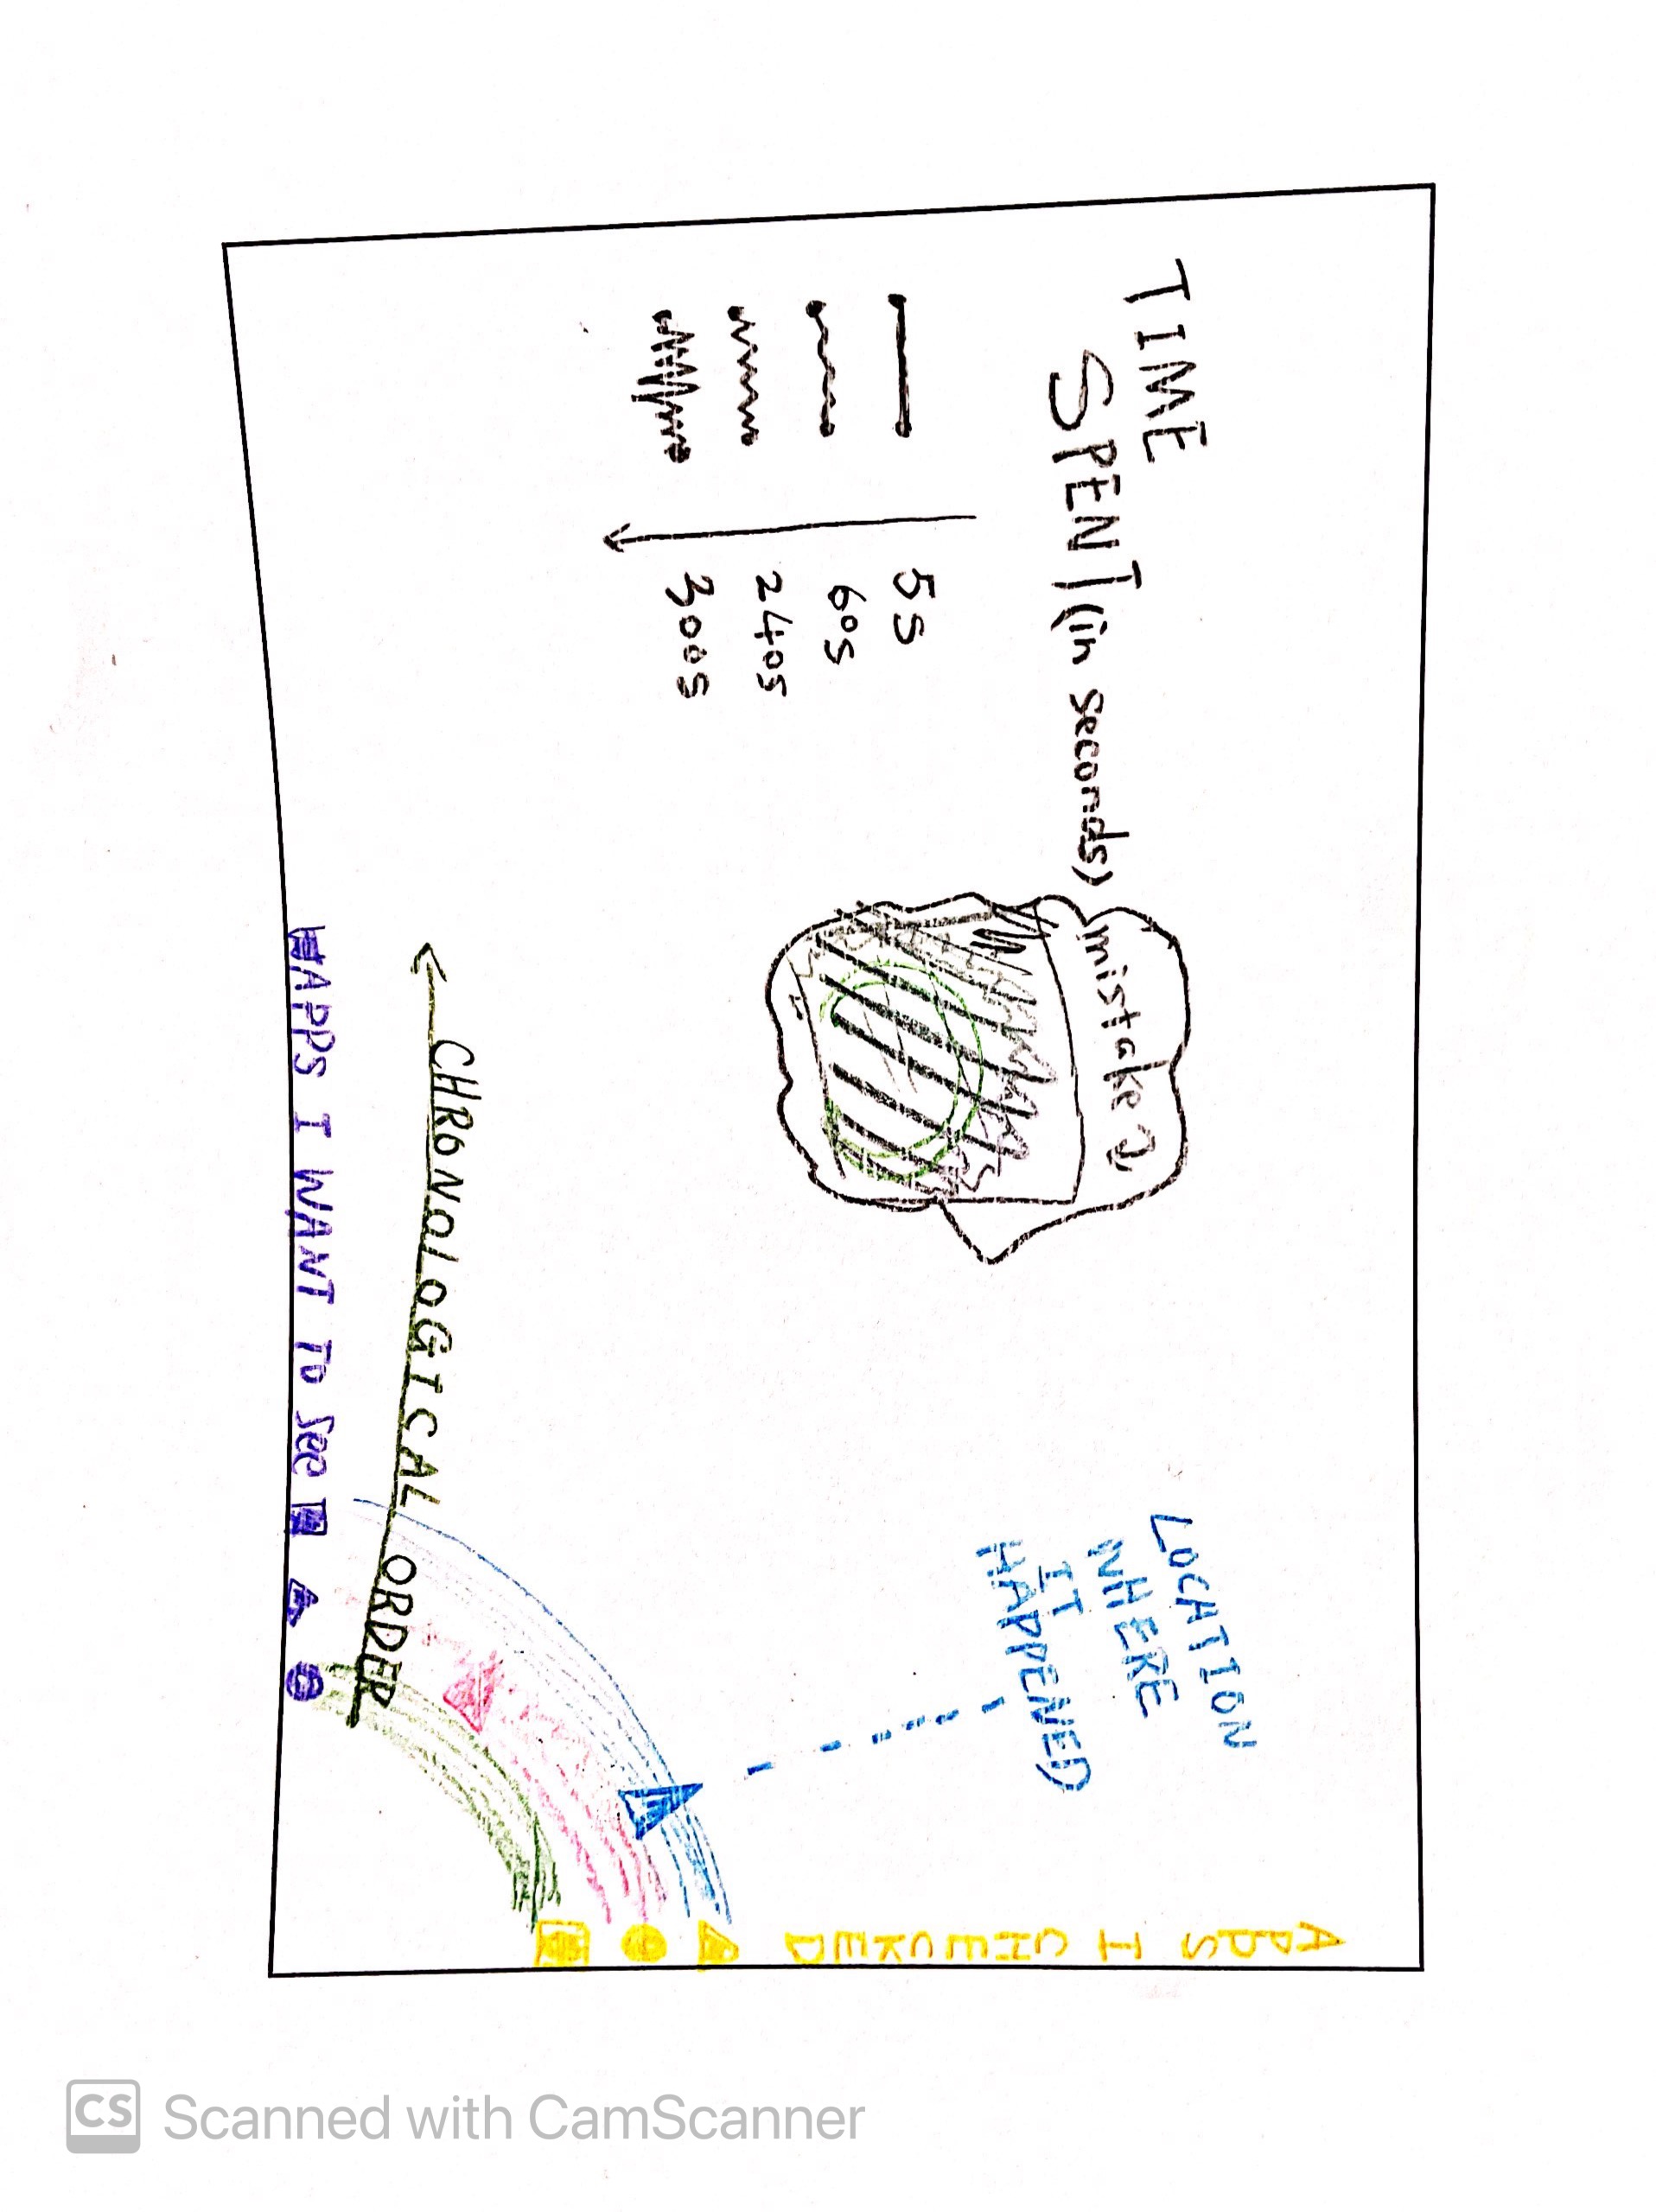 TIME
SPENT (in seconds)
5s
60s
240s
300s
mistake
LOCATION
WHERE
IT
HAPPENED
APPS I CHECKED
CHRONOLOGICAL ORDER
APPS I WANT TO See
CS Scanned with CamScanner